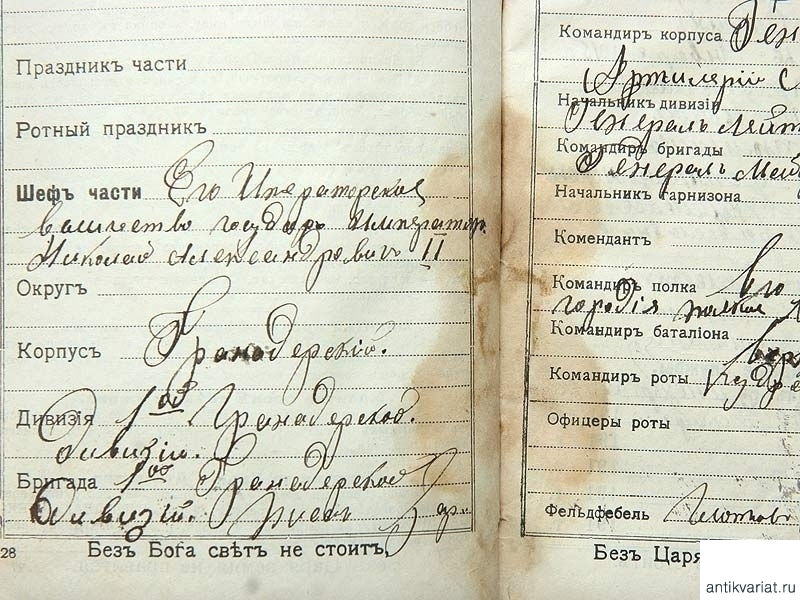 Праздникъ части
Ротный праздникъ
Шефъ части Его Императорское
Величество государь Император
Николай Александровичъ II
Округъ
Корпусъ Гранадерскій.
Дивизія 1ой Гранадерской
дивизіи.
Бригада 1ой Гранадерской
Дивизій.
28 Безъ Бога свѣтъ не стоитъ,
Командиръ корпуса Ген
Артилеріи
Начальникъ дивизіи
Генералъ Лейт
Командиръ бригады
Генералъ
Начальникъ гарнизона
Комендантъ
Командиръ полка Его
полка
Командиръ баталіона
Командиръ роты
Офицеры роты
Фельдфебель
Безъ Царя
antikvariat.ru